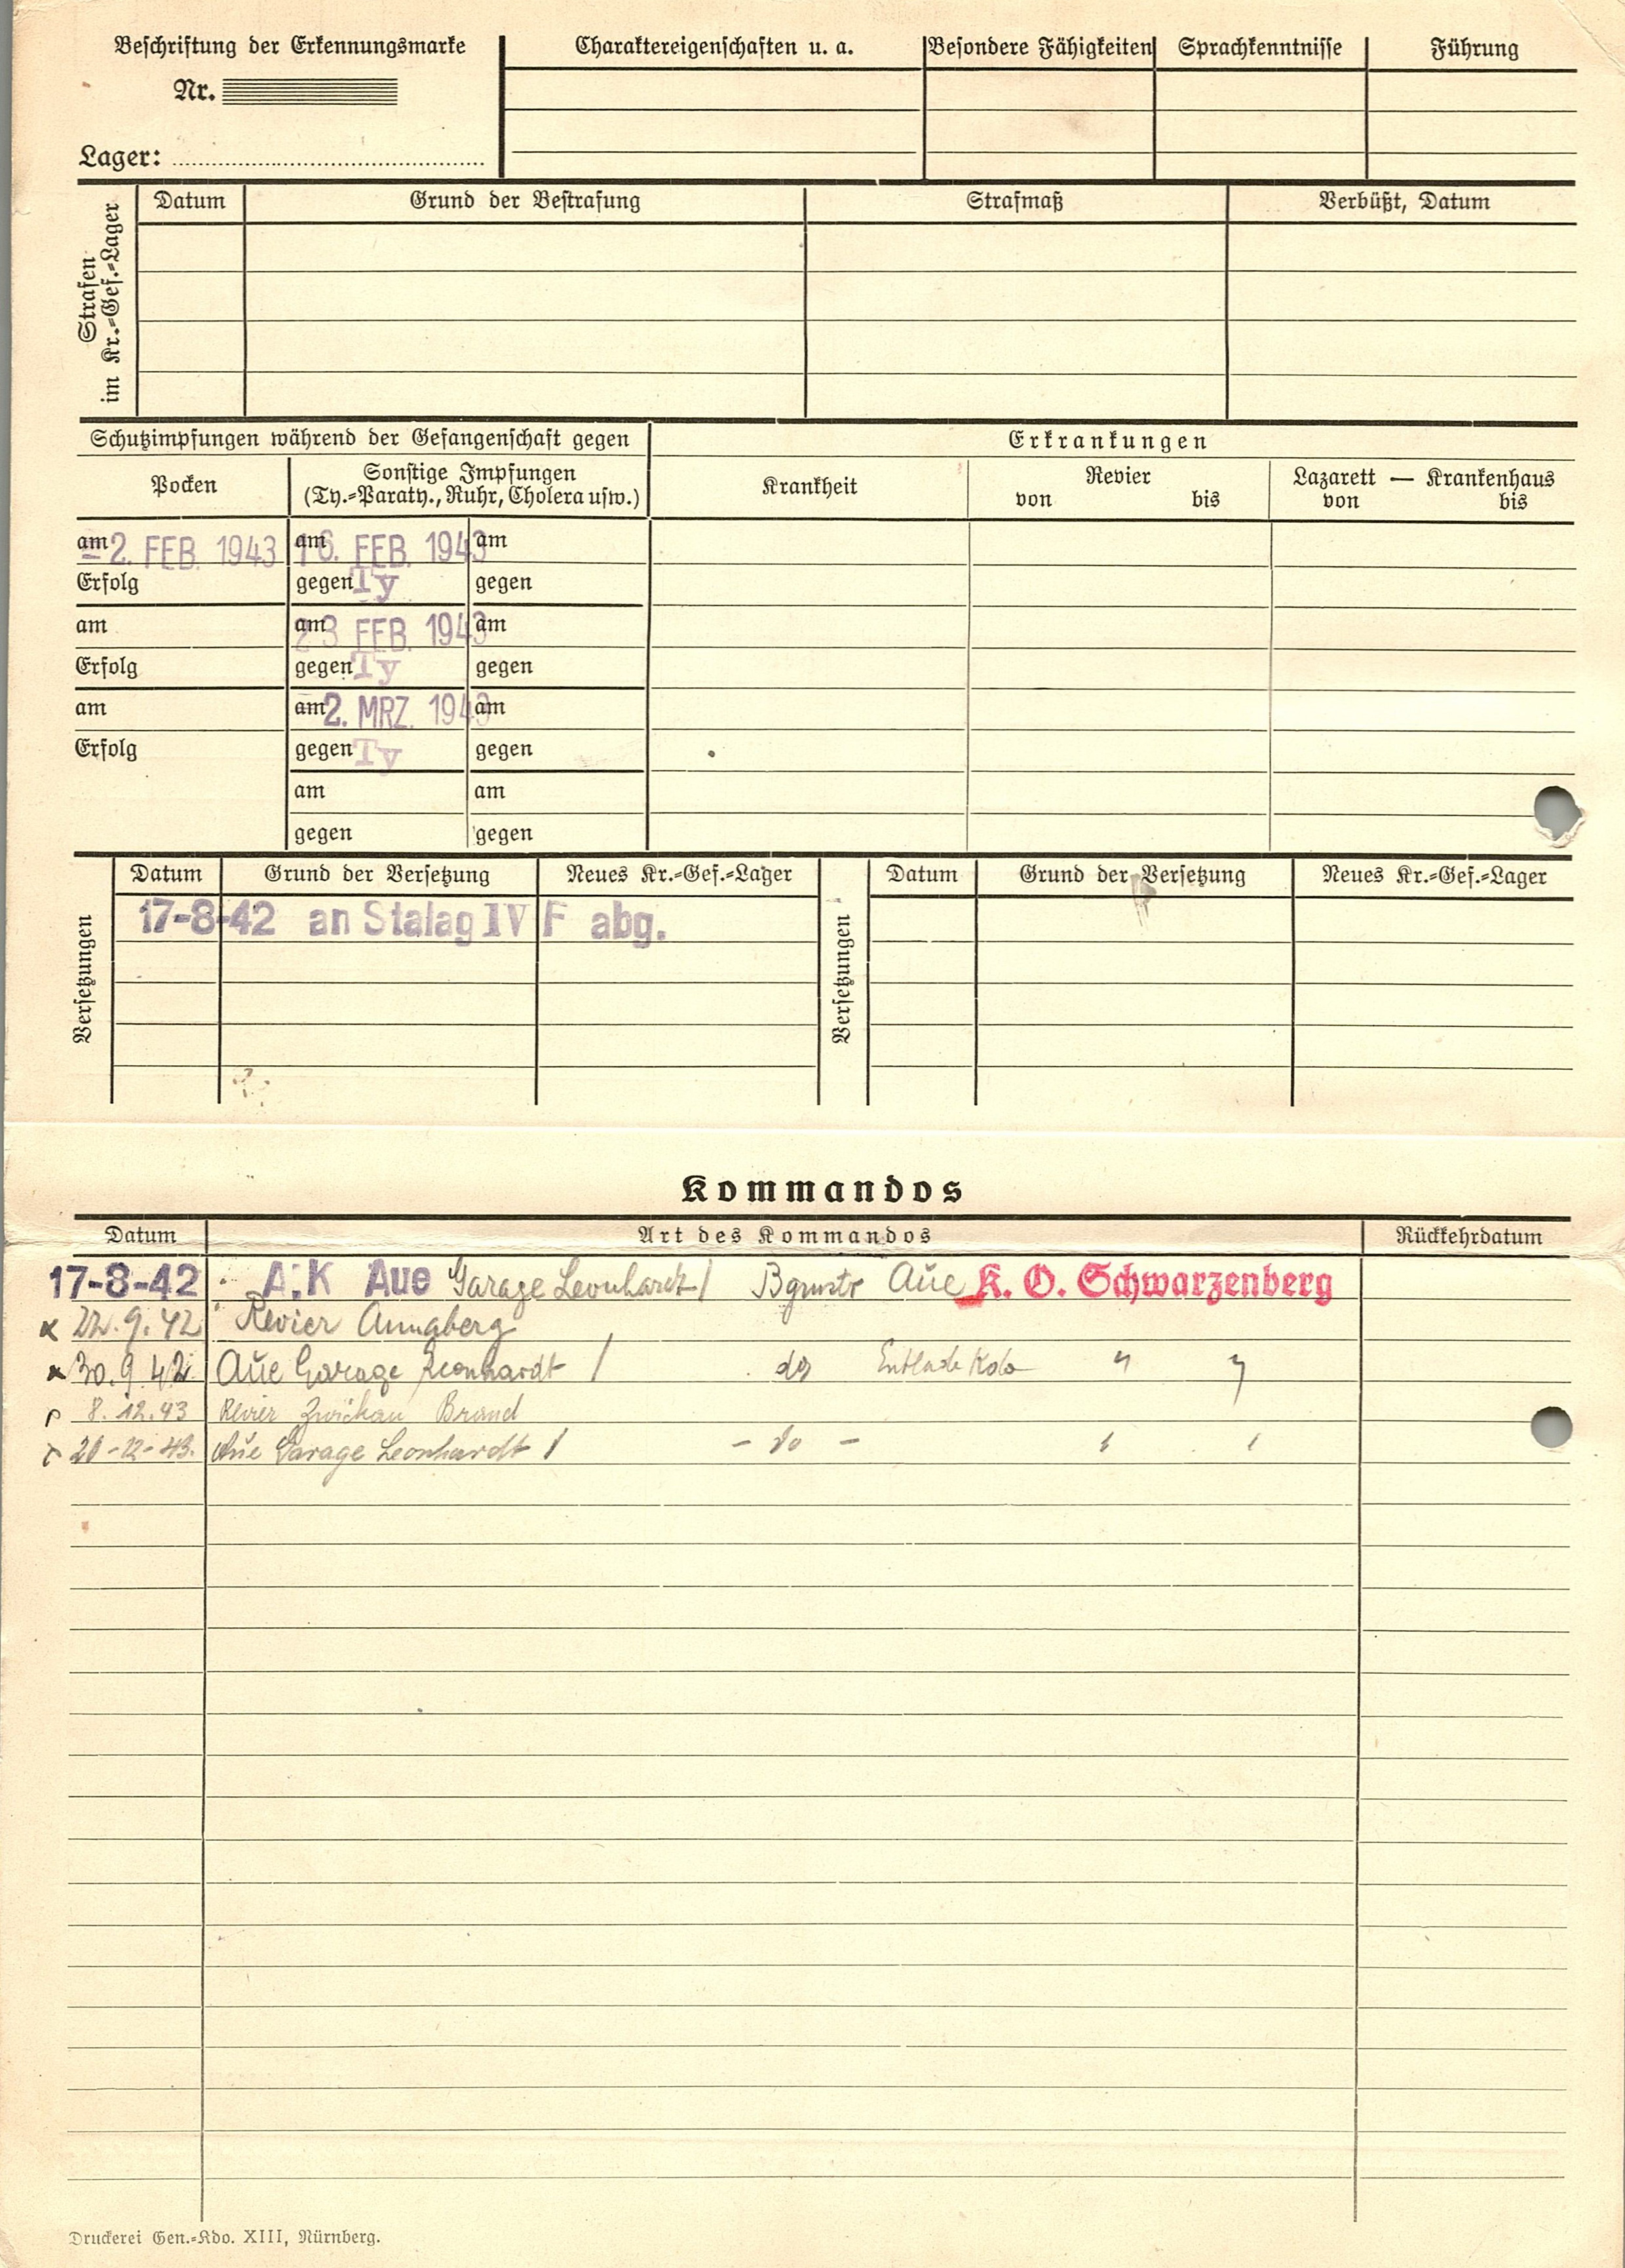 Beschriftung der Erkennungsmarke
Nr.
Lager:
Charaktereigenschaften u. a.
Besondere Fähigkeiten
Sprachkenntnisse
Führung
Strafen
im Kr.=Gef.=Lager
Datum
Grund der Bestrafung
Strafmaß
Verbüßt, Datum
Schutzimpfungen während der Gefangenschaft gegen
Erkrankungen
Pocken
Sonstige Impfungen
(Ty.=Paraty., Ruhr, Cholera usw.)
Krankheit
Revier
von bis
Lazarett — Krankenhaus
von bis
am -2. FEB. 1943 am 16. FEB. 1943 am
Erfolg gegen Ty gegen
am am 23 FEB. 1943 am
Erfolg gegen Ty gegen
am am 2. MRZ. 1943 am
Erfolg gegen Ty gegen
am am
gegen gegen
Versetzungen
Datum Grund der Versetzung Neues Kr.=Gef.=Lager
17-8-42 an Stalag IV F abg.
Versetzungen
Datum Grund der Versetzung Neues Kr.=Gef.=Lager
Kommandos
Datum Art des Kommandos Rückkehrdatum
17-8-42 A.K Aue Garage Leonhardt / Bgmstr Aue K. O. Schwarzenberg
x 22.9.42 Revier Annaberg
x 30.9.42 Aue Garage Leonhardt / Entlade Kdo " "
8.12.43 Revier Zwickau Brand
20-12-43. Aue Garage Leonhardt / - do -
Druckerei Gen.=Kdo. XIII, Nürnberg.